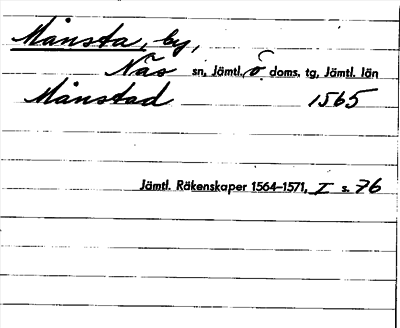 Månsta, by,
Näs sn, Jämtl. ö doms. tg, Jämtl. län
Månstad 1565
Jämtl. Räkenskaper 1564–1571, I s. 76